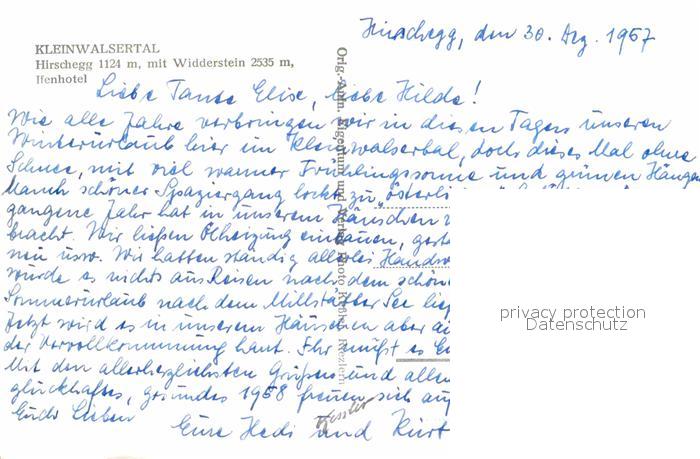 Hirschegg, den 30. Dez. 1957
KLEINWALSERTAL
Hirschegg 1124 m, mit Widderstein 2535 m,
Ifenhotel
Liebe Tante Elise, liebe Hilde!
Wie alle Jahre verbringen wir in diesen Tagen unseren
Winterurlaub hier im Kleinwalsertal, doch dieses Mal ohne
Schnee, mit viel warmer Frühlingssonne und grünen Hängen
Manch schöner Spaziergang lockt zu „österli
gangene Jahr hat in unserem Häuschen
bracht. Wir ließen Ölheizung einbauen,
neu usw. Wir hatten ständig allerlei Handw
wurde es nichts aus Reisen nach dem schön
Sommerurlaub nach dem Millstätter See
Jetzt wird es in unserem Häuschen aber
der Vervollkommnung haut. Ihr müßt es
Mit den allerherzlichsten Grüßen und allen
glückhaftes, gesundes 1958 freuen sich auf
Euch Lieben
Eure Hedi und Kurt
Kessler
Orig.-Aufn. Eigentum und Verlag Photo Keßler, Riezlern
privacy protection
Datenschutz